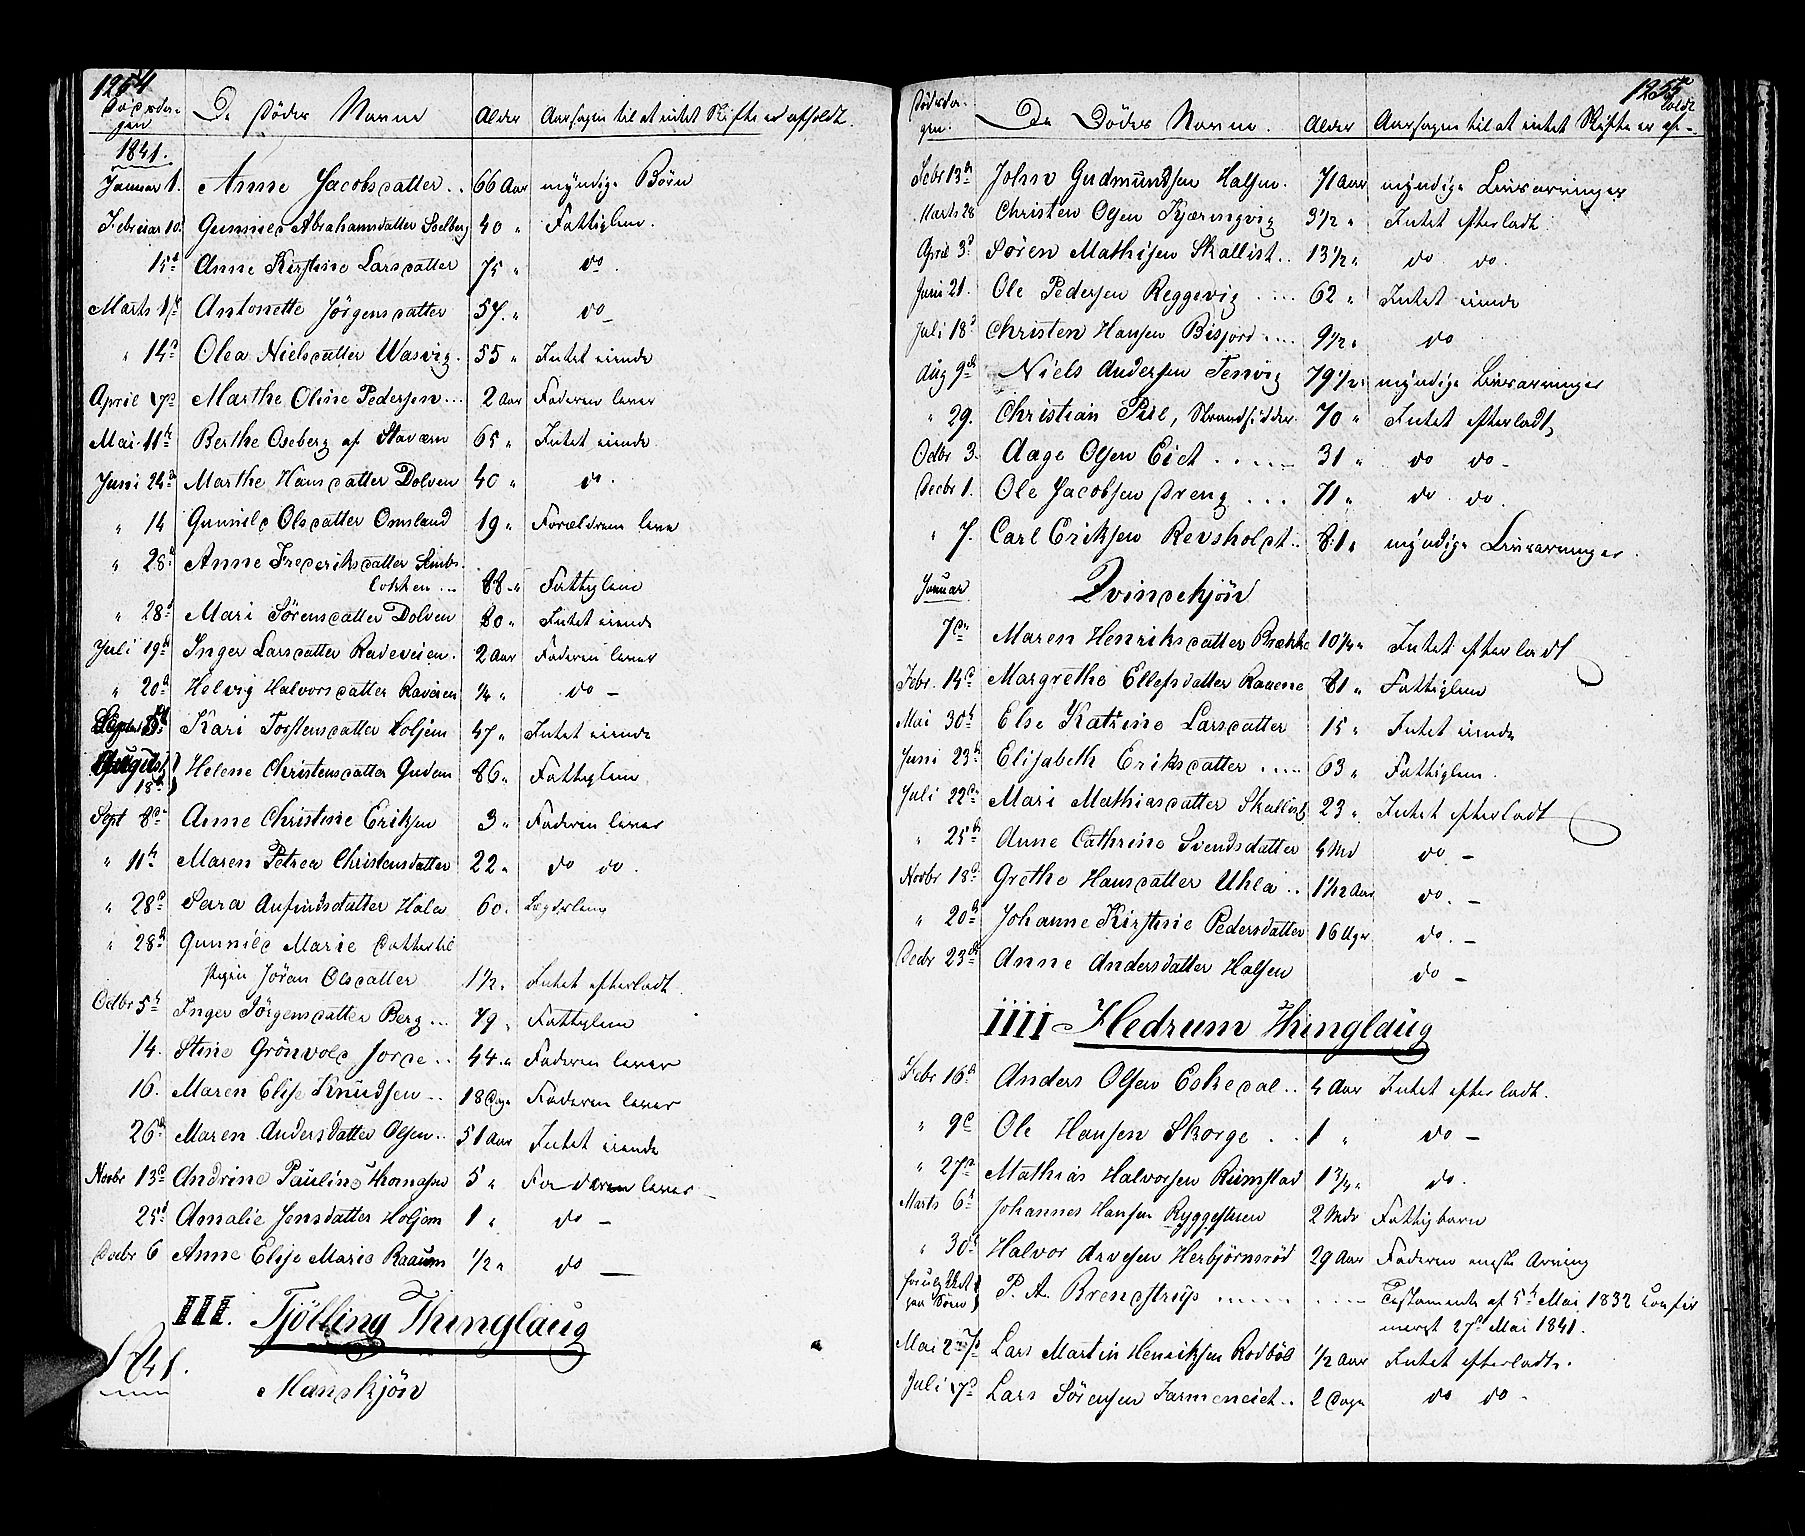 1254
Dødsda-
gen De Døde's Navne Alder Aarsagen til at intet Skifte er afholdt.
1841.
Januar 1. Anne Jacobsdatter .. 66 Aar myndige Børn
Februar 10. Gunnild Abrahamsdatter Soelberg 40 " Fattiglem.
15d Anne Kirstine Larsdatter 75 " do.
Marts 1st Antonette Jørgensdatter 57. " do -
" 14d Olea Nielsdatter Wasvig. 55 " Intet eiende
April 17d Marthe Oline Pedersen ... 2 Aar Faderen lever
Mai 11te Berthe Oseberg af Staværn 65 " Intet eiende
Juni 24d Marthe Hansdatter Dolven 40 " do.
" 14 Gunnild Olsdatter Omsland 19 " Forældrene leve
" 28d Anne Frederiksdatter
løkken ... 88 - " Fattiglem
" 28d Mari Sørensdatter Dolven 80 " Intet eiende
Juli 19d Inger Larsdatter Radeveien. 2 Aar Faderen lever
" 20d Helvig Halvorsdatter Raveien 1/4 " do -
Kari Torstensdatter Holjem 47 " Intet eiende
August
18d Helene Christensdatter Guden 86 " Fattiglem
Sept 8de Anne Christine Eriksen 3 " Faderen lever
" 11te Maren Petrea Christensdatter 22 " do do.
" 28d Sara Anfindsdatter Holer 60. Lægdslem
" 28d Gunnild Marie Datter til
Pigen Jøran Olsdatter 1 1/2 " Intet efterladt.
Octbr 5te Inger Jørgensdatter Berg ... 79 " Fattiglem
14. Stine Grönvold Jorde .. 44. " Faderen lever
16. Maren Elise Knudsen .. 18 Dage Faderen lever
26d Maren Andersdatter Olsen .. 51 Aar Intet eiende
Novbr 13d Andrine Pauline Thomasen 5 " Faderen lever -
25d Amalie Jensdatter Holjem 1 " do -
Decbr 6 Anne Elise Marie Raaum 1/2 " do -
III. Tjølling Thinglaug
1841.
Mandkjøn
1255
Dødsda-
gen. De Døde's Navne. Alder Aarsagen til at intet Skifte er af-
holdt
Febr 13de John Gudmundsen Halsen. 71 Aar myndige Livsarvinger
Marts 28 Christen Olsen Kjæringvig 3 1/2 " Intet efterladt
April 3d Søren Mathisen Skallist .. 13 1/2 " do do.
Juni 21. Ole Pedersen Reggevig .... 62 " Intet eiende
Juli 18d Christen Hansen Bisjord .... 9 1/2 " do
Aug 9de Niels Andersen Tenvig 79 1/2 " myndige Livsarvinger
" 29. Christian Piil, Strandsidder. 70 " Intet efterladt,
Octbr 3. Aage Olsen Eid ..... 31 " do do -
Decbr 1. Ole Jacobsen Dreng ... 71 " do do.
" 7. Carl Eriksen Revsholdt .. 81 " myndige Livsarvinger.
Januar Qvindekjøn
7de Maren Henriksdatter Brække 10 1/4 " Intet efterladt
Febr. 14d Margrethe Ellefsdatter Rauene 81 " Fattiglem
Mai 30te Else Katrine Larsdatter 15 " Intet eiende
Juni 23de Elisabeth Eriksdatter ..... 63 " Fattiglem.
Juli 22de Mari Mathiasdatter Skallist 23 " Intet efterladt
" 25de Anne Cathrine Svendsdatter 4 Md do. -
Novbr 18d Grethe Hansdatter Uhla .. 1 1/12 Aar do. -
" 20de Johanne Kirstine Pedersdatter 16 Uger do. -
Decbr 23de Anne Andersdatter Halsen do -
IIII - Hedrum Thinglaug
Febr 16d Anders Olsen Eskedal .. 4 Aar Intet efterladt.
" 9d Ole Hansen Skorge .. 1 " do -
" 27de Mathias Halvorsen Rimstad 1 3/4 " do.
Marts 6d Johannes Hansen Ryggesteen 2 Mdr Fattigbarn
" 30d Halvor Arvesen Herbjørnsrød 29 Aar Faderen eneste Arving
paa Søen P. A. Brendstrup ...... .... Testamente af 5te Mai 1832 confir
meret 27d Mai 1841.
Mai 27d Lars Martin Henriksen Rødbøl 1/2 Aar Intet efterladt.
Juli 17d Lars Sørensen Farmeneiet .. 2 Dage do do -